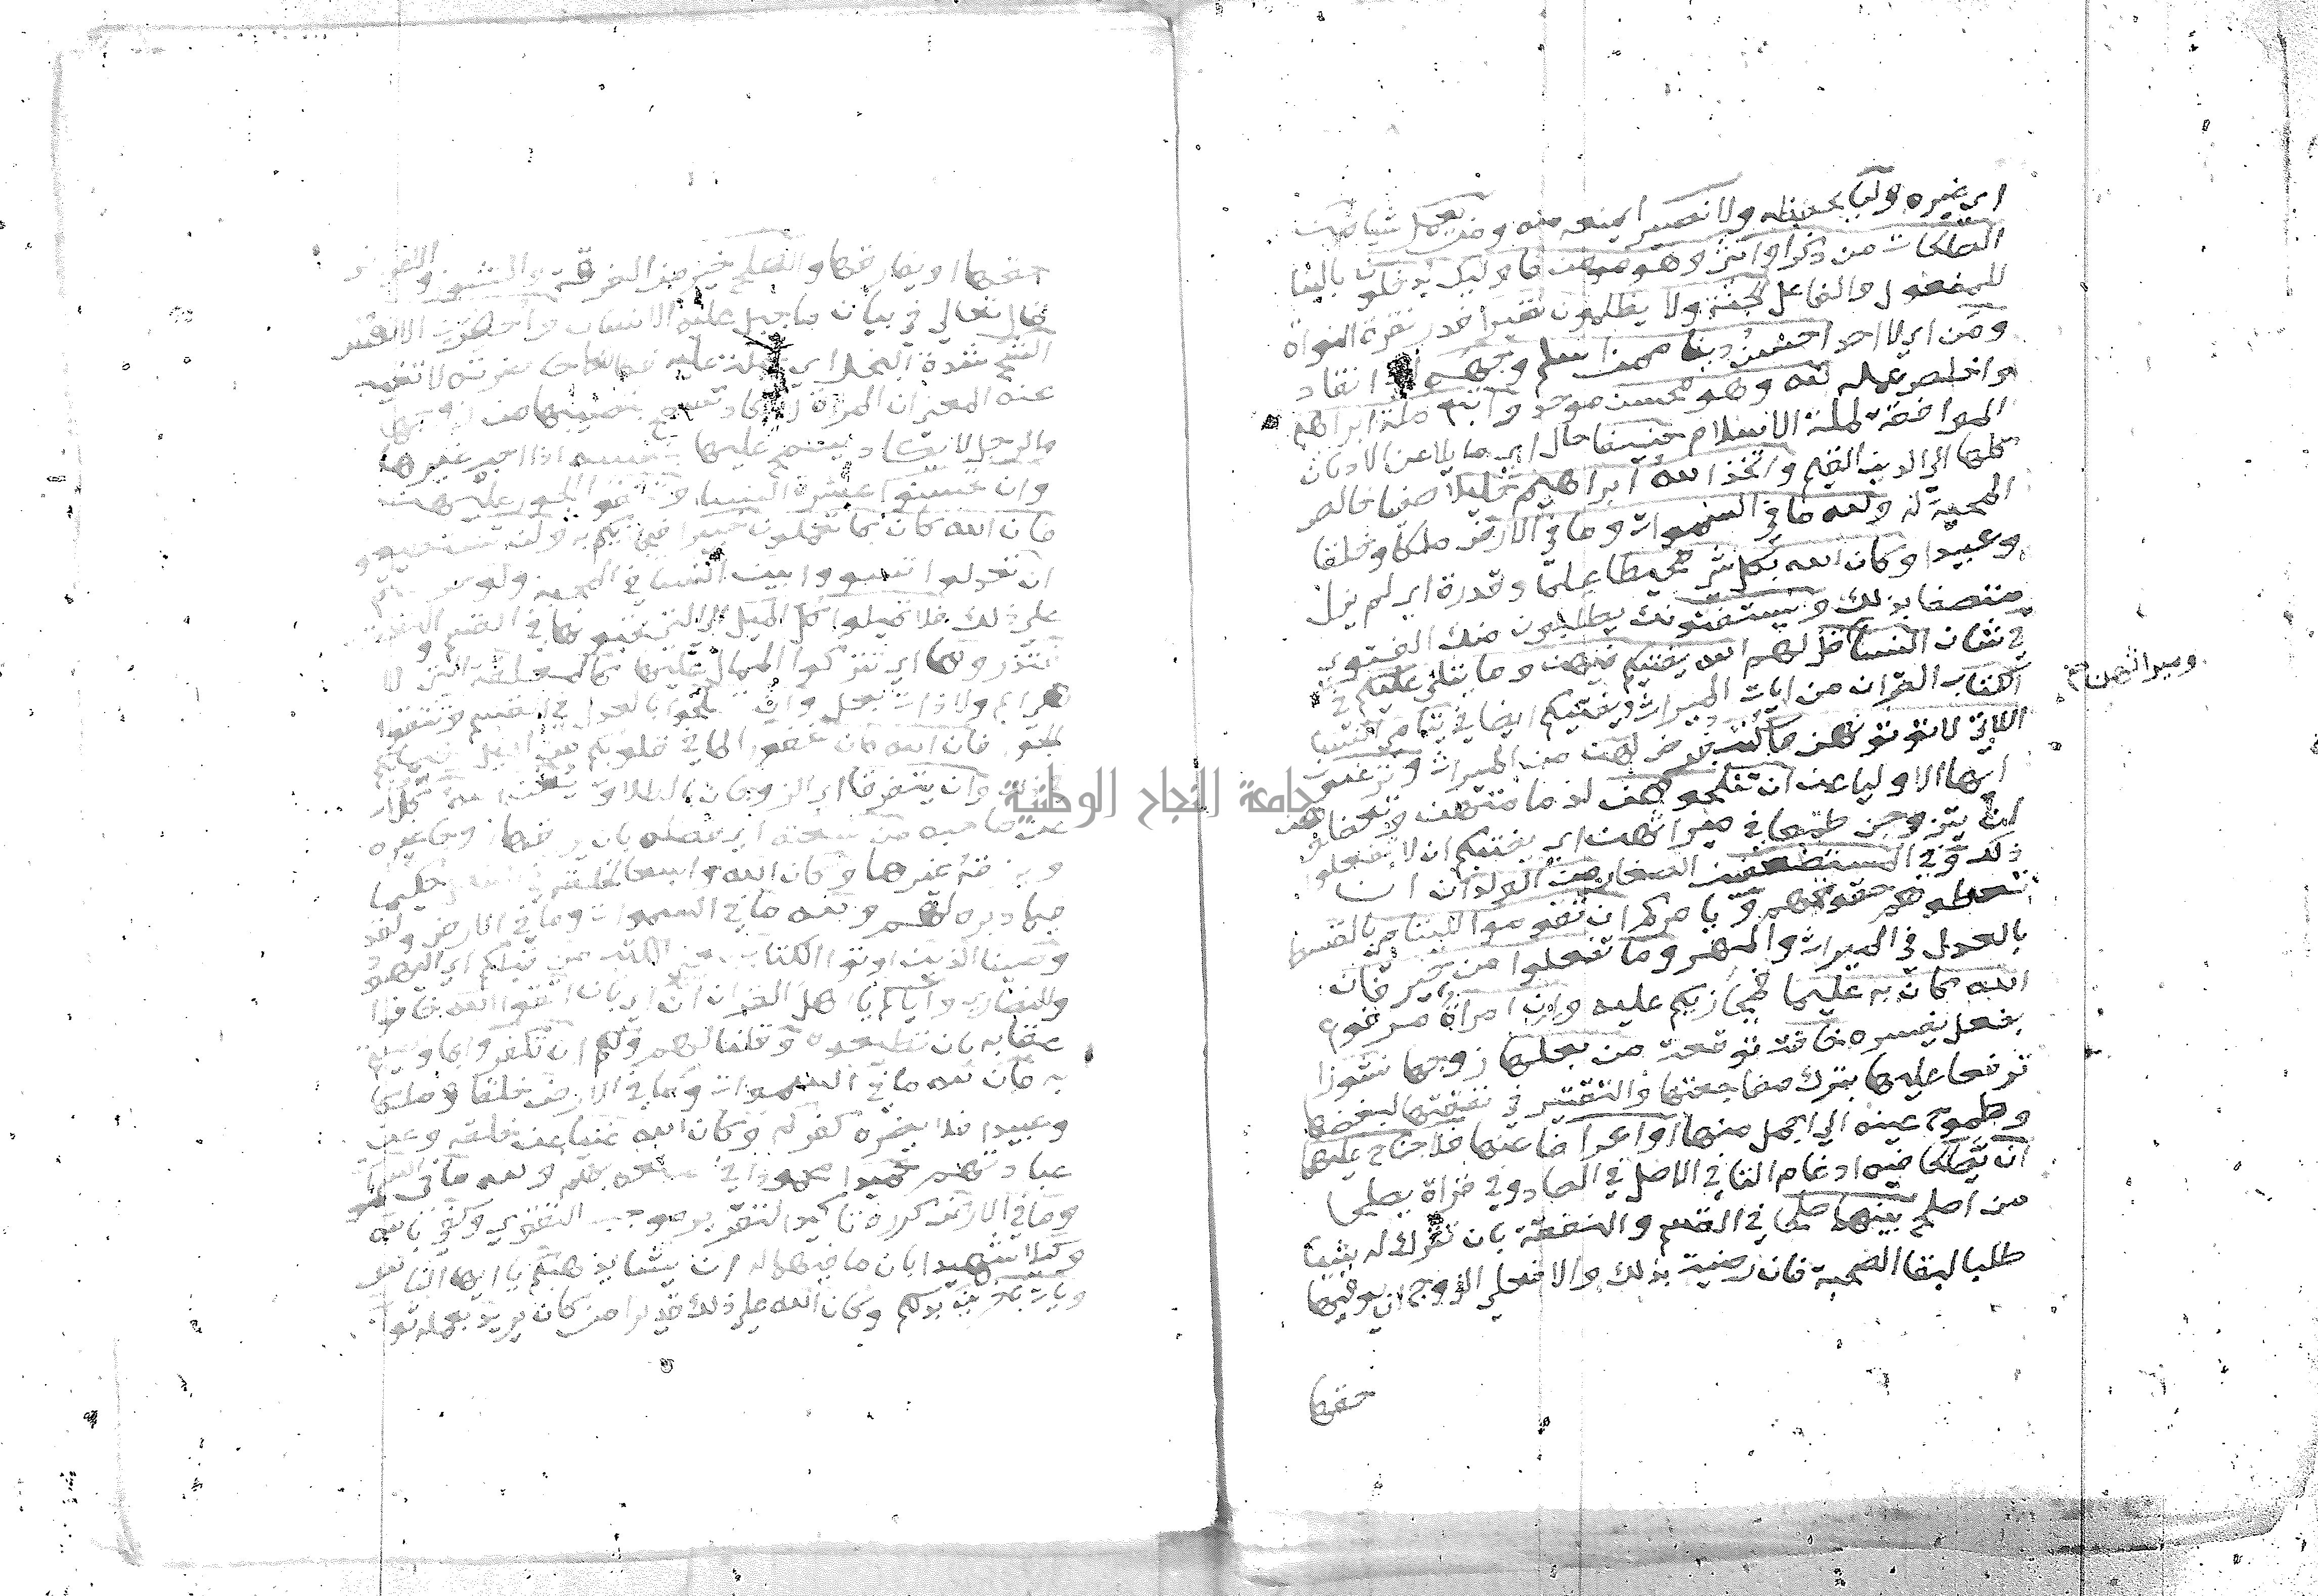 اي غيره وليا يحفظه ولا نصيرا يمنعه منه ومن يعمل شيا من
الصالحات من ذكر او انثى وهو مومن فاوليك يدخلون بالبنا
للمفعول والفاعل الجنة ولا يظلمون نقيرا قدر نقرة النواة
ومن اي لا احد احسن دينا ممن اسلم وجهه انقاد
واخلص عمله لله وهو محسن موحد واتبع ملة ابراهيم
الموافقة لملة الاسلام حنيفا حال اي مايلا عن الاديان
كلها الي الدين القيم واتخذ الله ابراهيم خليلا صفيا خالص
المحبة له ولله ما في السموات وما في الارض ملكا وخلقا
وعبيدا وكان الله بكل شي محيطا علما وقدرة اي لم يزل
متصفا بذلك ويستفتونك يطلبون منك الفتوي
في شان النسا قل لهم الله يفتيكم فيهن وما يتلي عليكم في
الكتاب القران من ايات الميراث ويفتيكم ايضا في يتامي النسا
اللاتي لا توتونهن ما كتب فرض لهن من الميراث وترغبون
ايها الاوليا عن ان تنكحوهن لدمامتهن وتعضلوهن
ان يتزوجن طمعا في ميراثهن اي يفتيكم ان لا تفعلوا
ذلك وفي المستضعفين الصغار من الولدان ان
تعطوهم حقوقهم ويامركم ان تقوموا لليتامي بالقسط
بالعدل في الميراث والمهر وما تفعلوا من خير فان
الله كان به عليما فيجازيكم عليه وان امراة مرفوع
بفعل يفسره خافت توقعت من بعلها زوجها نشوزا
ترفعا عليها بترك مضاجعتها والتقتير في نفقتها لبغضها
وطموح عينه الي اجمل منها او اعراضا عنها فلا جناح عليهما
ان يصالحا فيه ادغام التا في الاصل في الصاد وفي قراة يصلحا
من اصلح بينهما صلحا في القسم والنفقة بان تترك له شيا
طلبا لبقا الصحبة فان رضيت بذلك والا فعلي الزوج ان يوفيها
حقها
وميراثهن
حقها او يفارقها والصلح خير من الفرقة والنشوز و
قال تعالي في بيان ما جبل عليه الانسان واحضرت الانفس
الشح شدة البخل اي جبلت عليه
عنه المعني ان المراة لا تكاد تسمح بنصيبها من زوجها
والرجل لا يكاد يسمح عليها بنفسه اذا احب غيرها
وان تحسنوا عشرة النسا وتتقوا الجور عليهن
فان الله كان بما تعملون خبيرا فيجازيكم به ولن تستطيعوا
ان تعدلوا تسووا بين النسا في المحبة ولو حرصتم
علي ذلك فلا تميلوا كل الميل الي التي تحبونها في القسم والنفقة
فتذروها اي تتركوا الممال عليها كالمعلقة التي لا
هي ايم ولا ذات بعل وان تصلحوا بالعدل في القسم وتتقوا
الجور فان الله كان غفورا لما في قلوبكم من الميل رحيما بكم
في ذلك وان يتفرقا اي الزوجان بالطلاق يغن الله كلا
عن صاحبه من سعته اي فضله بان يرزقها زوجا غيره
ويرزقه غيرها وكان الله واسعا لخلقه حكيما
فيما دبره لهم ولله ما في السموات وما في الارض ولقد
وصينا الذين اوتوا الكتاب من قبلكم اي اليهود
والنصاري واياكم يا اهل القران ان اي بان اتقوا الله خافوا
عقابه بان تطيعوه وقلنا لهم ولكم ان تكفروا بما وصيتم
به فان لله ما في السموات وما في الارض خلقا وملكا
وعبيدا فلا يضره كفركم وكان الله غنيا عن خلقه وعن
عبادتهم حميدا محمودا في صنعه بهم ولله ما في السموات
وما في الارض كرره تاكيدا لتقرير موجب التقوي وكفي بالله
وكيلا شهيدا بان ما فيهما له ان يشا يذهبكم يا ايها الناس
ويات باخرين بدلكم وكان الله علي ذلك قديرا من كان يريد بعمله ثواب
جامعة النجاح الوطنية